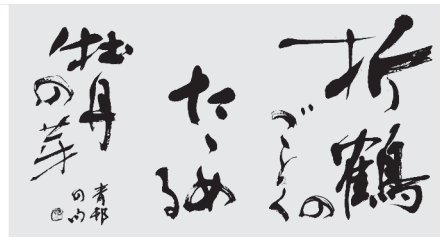 折鶴の
ごとく
たゝめ
る
牡丹
の芽
青邨
の句